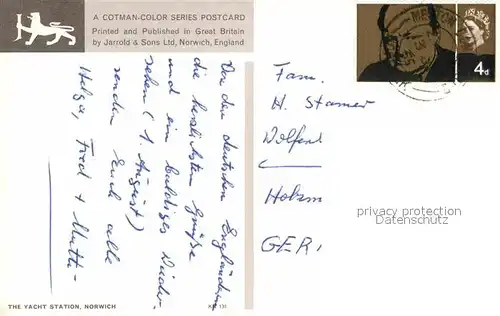 A COTMAN-COLOR SERIES POSTCARD
Printed and Published in Great Britain
by Jarrold & Sons Ltd, Norwich, England
4d
Von den deutschen Engländern
die herzlichsten Grüße
und ein baldiges Wieder-
sehen (1. August)
senden Euch alle
Helga, Fred + Mutti
Fam.
H. Stamer
Holzm
GER
privacy protection
Datenschutz
THE YACHT STATION, NORWICH